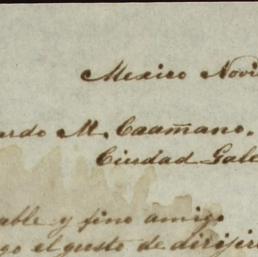 Mexico Novi
ardo M. Caamaño.
Ciudad Gale
able y fino amigo
go el gusto de dirijir